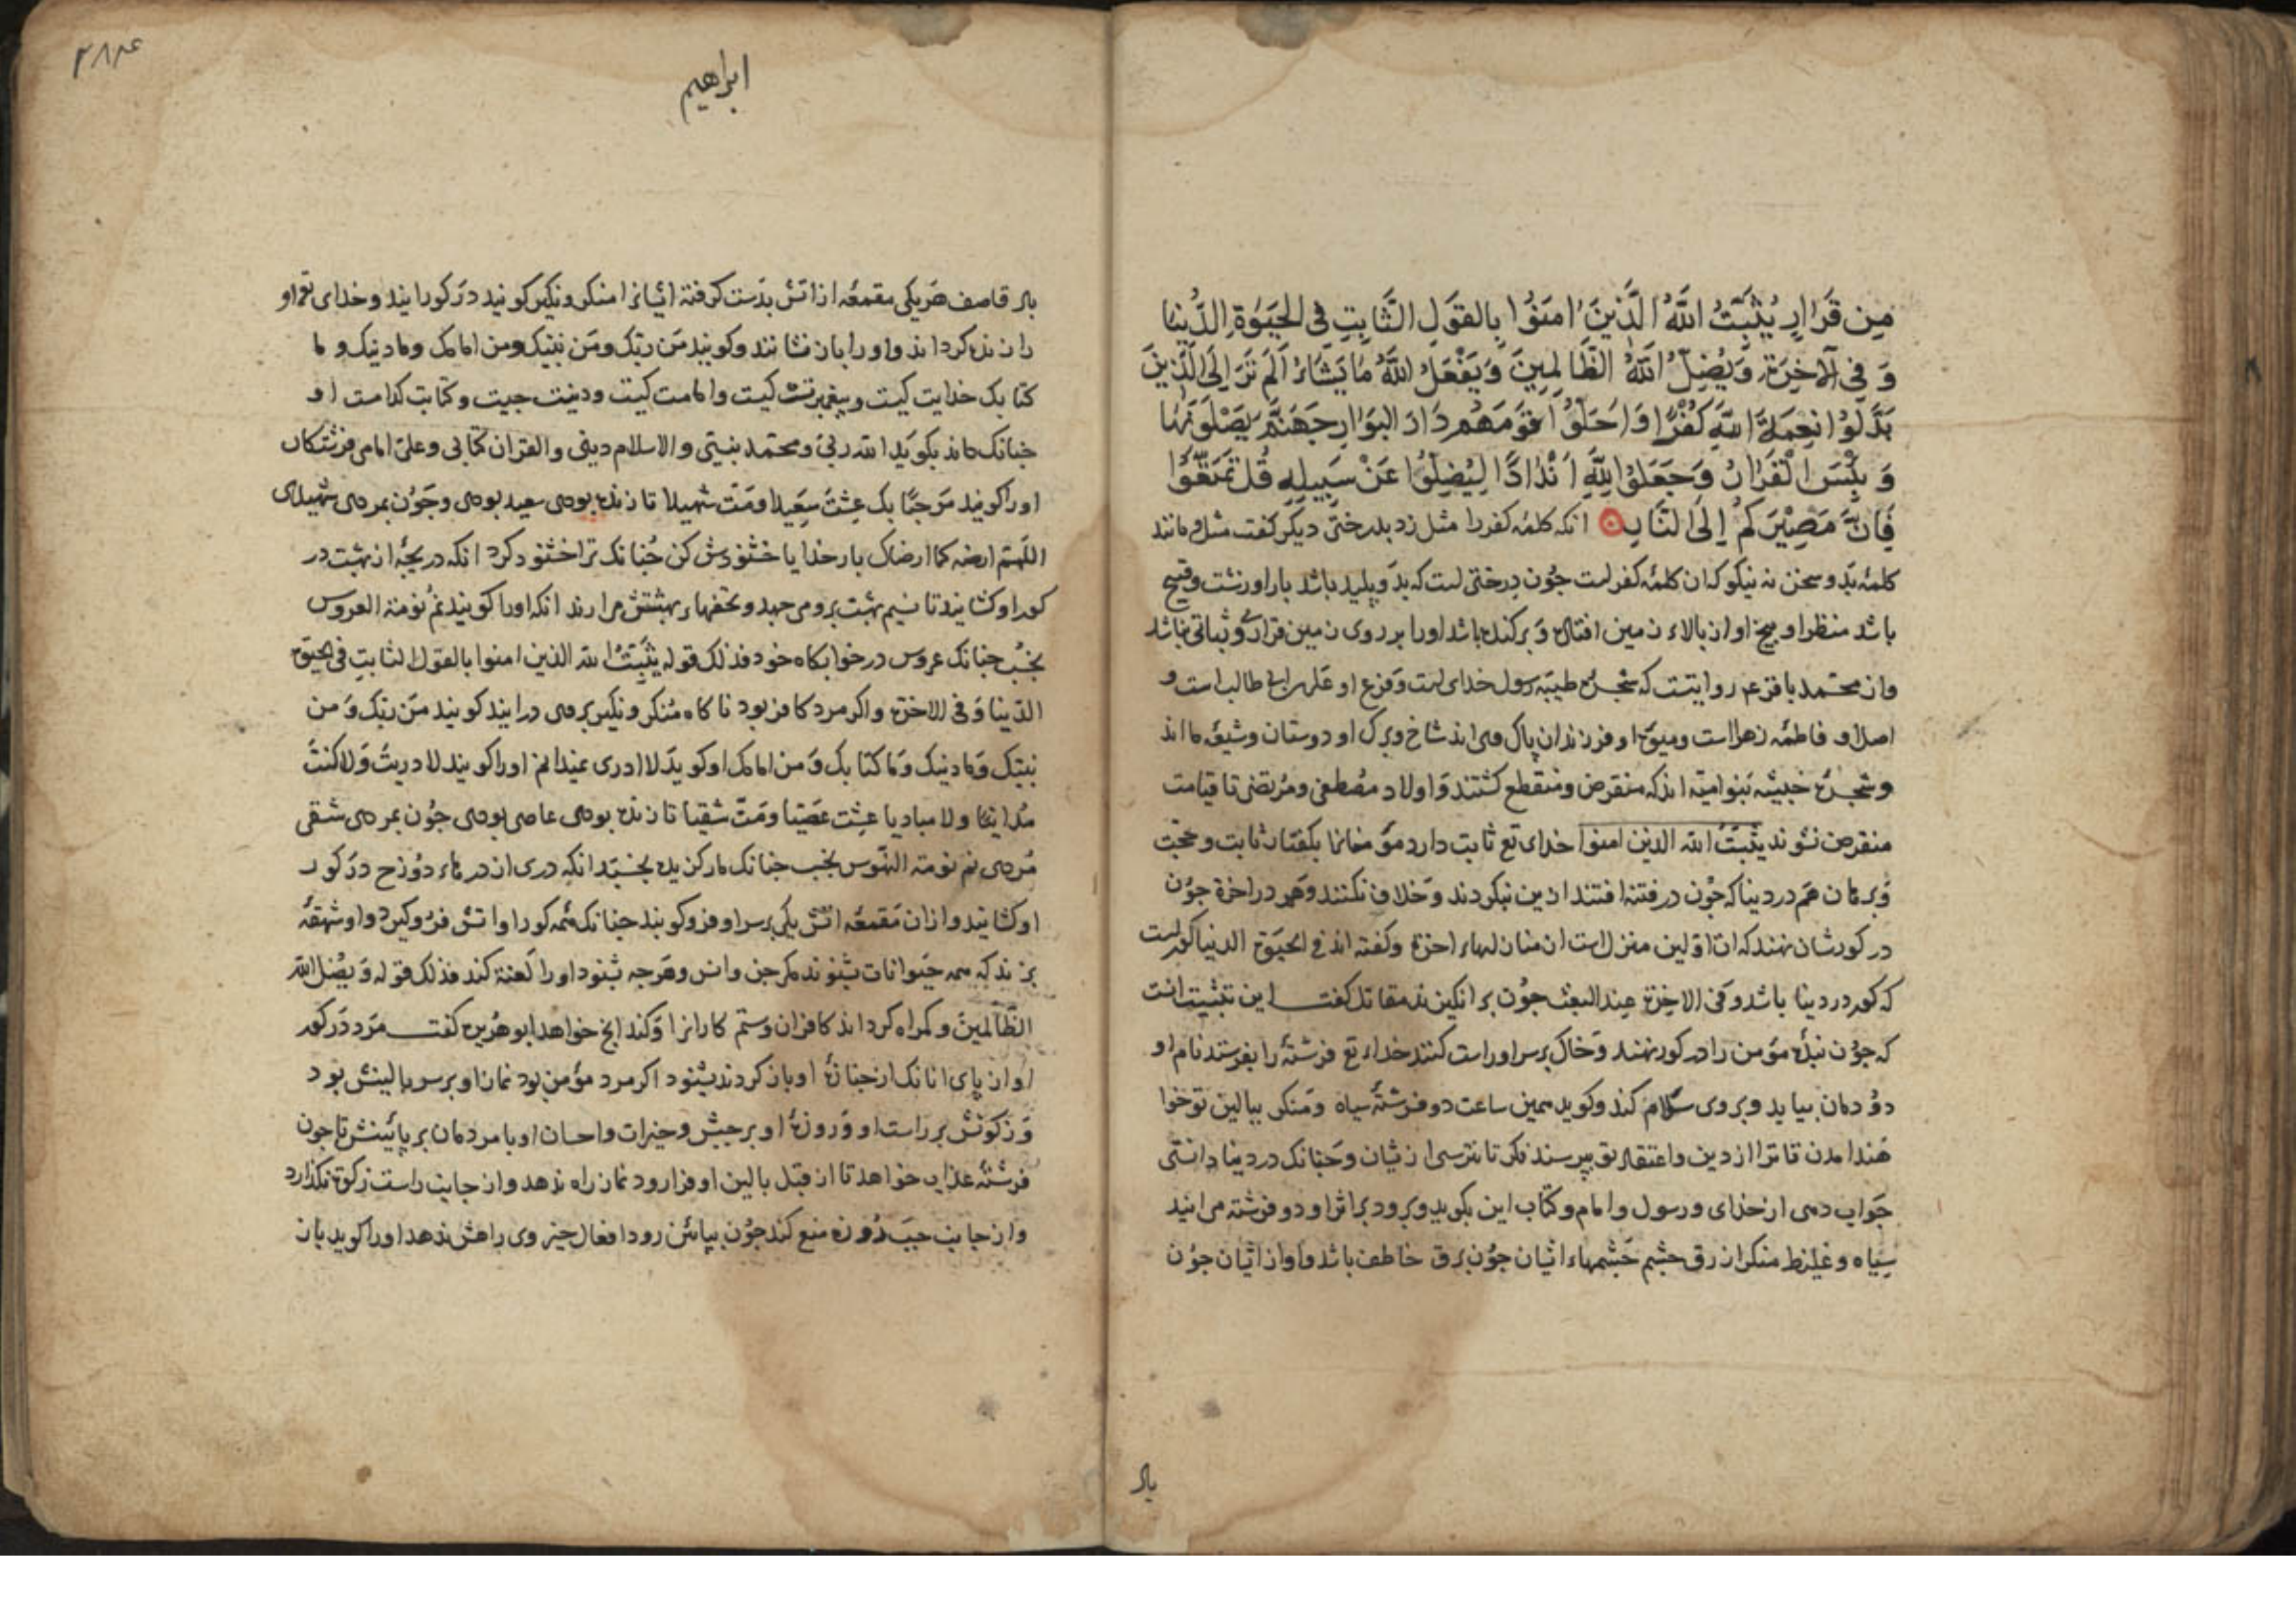 مِن قَرَارٍ يُثَبِّتُ اللَّهُ الَّذِينَ اٰمَنُوا بِالقَولِ الثَّابِتِ فِي الحَيٰوةِ الدُّنيَا
وَ فِي الآخِرَةِ وَيُضِلُّ اللَّهُ الظَّالِمِينَ وَيَفْعَلُ اللَّهُ مَا يَشَاءُ اَلَم تَرَ اِلَى الَّذِينَ
بَدَّلُوا نِعمَةَ اللهِ كُفْرًا وَاَحَلُّوا قَومَهُم دَارَ البَوَارِ جَهَنَّمَ يَصْلَونَهَا
وَ بِئْسَ القَرَارُ وَجَعَلُوا لِلَّهِ اَنْدَادًا لِيُضِلُّوا عَنْ سَبِيلِهِ قُل تَمَتَّعُوا
فَاِنَّ مَصِيْرَكُم اِلَى النَّارِ انكه كلمهٔ كفر را مثل زد بدرختى ديكر كفت مثل و مانند
كلمهٔ بد و سخن نه نيكو كه ان كلمهٔ كفر است جون درختى است كه بد و پليد باشد بار او زشت و قبيح
باشد منظر او و بيخ او از بالاء زمين افتاده و بركنده باشد او را بر روى زمين قرار و ثباتى نباشد
و از محمد باقر ع روايتست كه شجرهٔ طيبه رسول خداى است و فرع او على بن ابى طالب است و
اصل او فاطمه زهرا است و ميوهٔ او فرزندان پاك وى اند شاخ و برك او دوستان و شيعهٔ ما اند
و شجرهٔ خبيثه بنو اميه اند كه منقرض و منقطع كشتند و اولاد مصطفى و مرتضى تا قيامت
منقرض نشوند يثبت الله الذين امنوا خداى تع ثابت دارد مؤمنانرا بكفتار ثابت و حجت
و برهان هم در دينا كه جون در فتنه افتند از دين نبكردند و خلاف نكنند و هم در اخرة جون
در كورشان نهند كه ان اولين منزل است از منازلهاء اخرة و كفته اند في الحيوة الدنيا كور است
كه كور در دينا باشد و فى الاخرة عند البعث جون برانكيزند مقاتل كفت اين تثبيت انست
كه جون بندهٔ مؤمن را در كور نهند و خاك بر سر او راست كنند خداء تع فرشتهٔ را بفرستد نام او
دو دمان بيايد و بر وى سلام كند و كويد همين ساعت دو فرشتهٔ سياه و منكر ببالين تو خوا
هند امدن تا ترا از دين و اعتقاد تو بپرسند نكر تا نترسى از يشان و جنانك در دينا دانستى
جواب دهى از خداى و رسول و امام و كتاب اين بكويد و برود بر اثر او دو فرشته مى ايند
سياه و غليظ منكر ازرق جشم جشمهاء ايشان جون برق خاطف باشد و اواز ايشان جون
باد
٢٨٤
ابراهيم
باد قاصف هر يكى مقمعهٔ از اتش بدست كرفته ايشانرا منكر و نكير كويند در كور ايند و خداى تع او
را زنده كرداند و او را باز نشانند و كويند من ربك و من نبيك و من امامك و ما دينك و ما
كتابك خدايت كيست و پيغمبرت كيست و امامت كيست و دينت جيست و كتابت كدامست او
جنانك داند بكويد الله ربي و محمد نبيي و الاسلام ديني و القران كتابي و على امامى فرشتكان
او را كويند مرحبًا بك عشت سعيدا و مت شهيدا تا زنده بودى سعيد بودى و جون بمردى شهيدى
اللهم ارضه كما ارضاك بار خدايا خشنودش كن جنانك ترا خشنود كرد انكه دريجهٔ از بهشت در
كور او كشايند تا نسيم بهشت بر و مى جهد و تحفهاء بهشتش مى ارند انكه او را كويند نم نومة العروس
بخسب جنانك عروس در خوابكاه خود فذلك قوله يثبت الله الذين امنوا بالقول الثابت في الحيوة
الدينا و في الاخرة و اكر مرد كافر بود ناكاه منكر و نكير بر وى در ايند كويند من ربك و من
نبيك و ما دينك و ما كتابك و من امامك او كويد لا ادرى نميدانم او را كويند لا دريت و لا كنت
عشت عصيا و مت شقيا تا زنده بودى عاصى بودى جون بمردى شقى
مردى نم نومة المنهوس بخسب جنانك مار كزيده بخسبد انكه درى از درهاء دوزخ در كور
او كشايند و از ان مقمعهٔ اتش يكى بر سر او فرو كوبند جنانك همه كور او اتش فرو كيرد و او شهقهٔ
بزند كه همه حيوانات بشنوند مكر جن و انس و هر جه بشنود او را لعنة كند فذلك قوله و يضل الله
الظالمين و كمراه كرداند كافران و ستم كارانرا و كند انج خواهد ابو هريره كفت مرد در كور
اواز پاى انانك از جنازهٔ او باز كردند بشنود اكر مرد مؤمن بود نماز او بر سر بالينش بود
و زكوتش بر راست او و روزهٔ او بر جبش و خيرات و احسان او با مردمان بر پائينش تا جون
فرشتهٔ عذاب خواهد تا از قبل بالين او فرا رود نماز راه ندهد و از جانب راست زكوة نكذارد
و از جانب جب روزه منع كند جون بپائين رود افعال خير وى راهش ندهد او را كويد باز